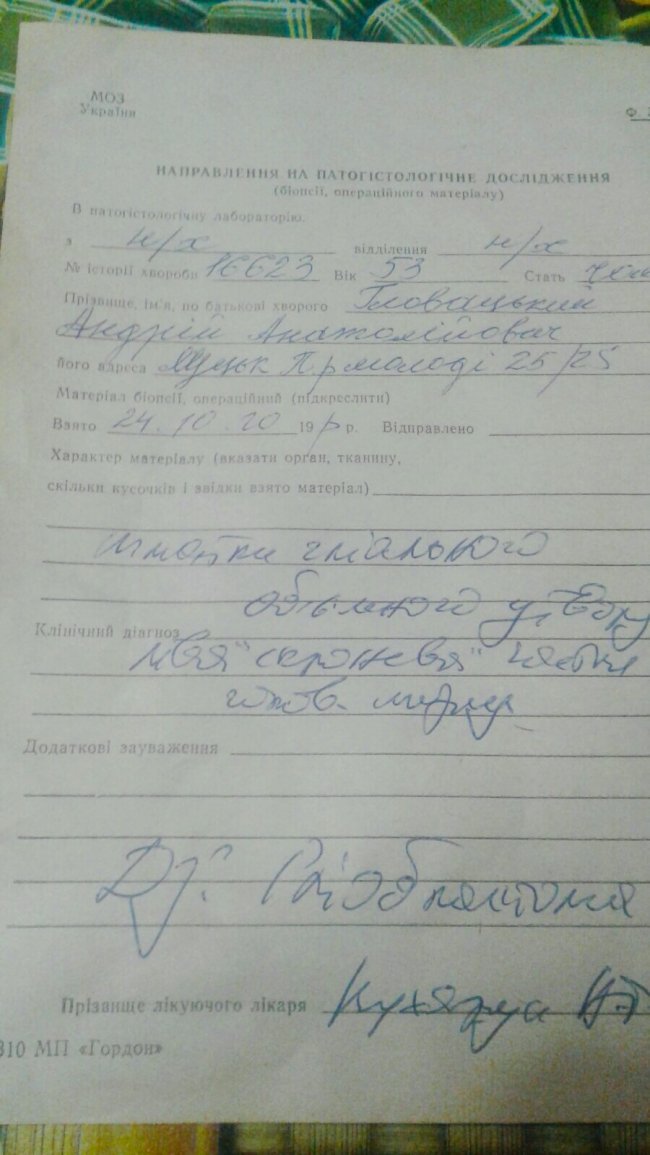 МОЗ
України
Ф.
НАПРАВЛЕННЯ НА ПАТОГІСТОЛОГІЧНЕ ДОСЛІДЖЕННЯ
(біопсії, операційного матеріалу)
В патогістологічну лабораторію.
з н/х відділення н/х
№ історії хвороби 16623 Вік 53 Стать
Прізвище, ім'я, по батькові хворого Гловацький
Андрій Анатолійович
його адреса Луцьк Пр молоді 25/25
Матеріал біопсії, операційний (підкреслити)
Взято 24.10.20 19 р р. Відправлено
Характер матеріалу (вказати орган, тканину,
скільки кусочків і звідки взято матеріал)
шматки гліального
об'ємного утвору
Клінічний діагноз
ліва скронева частка
голов. мозку
Додаткові зауваження
Dz: Гліобластома
Прізвище лікуючого лікаря
310 МП «Гордон»